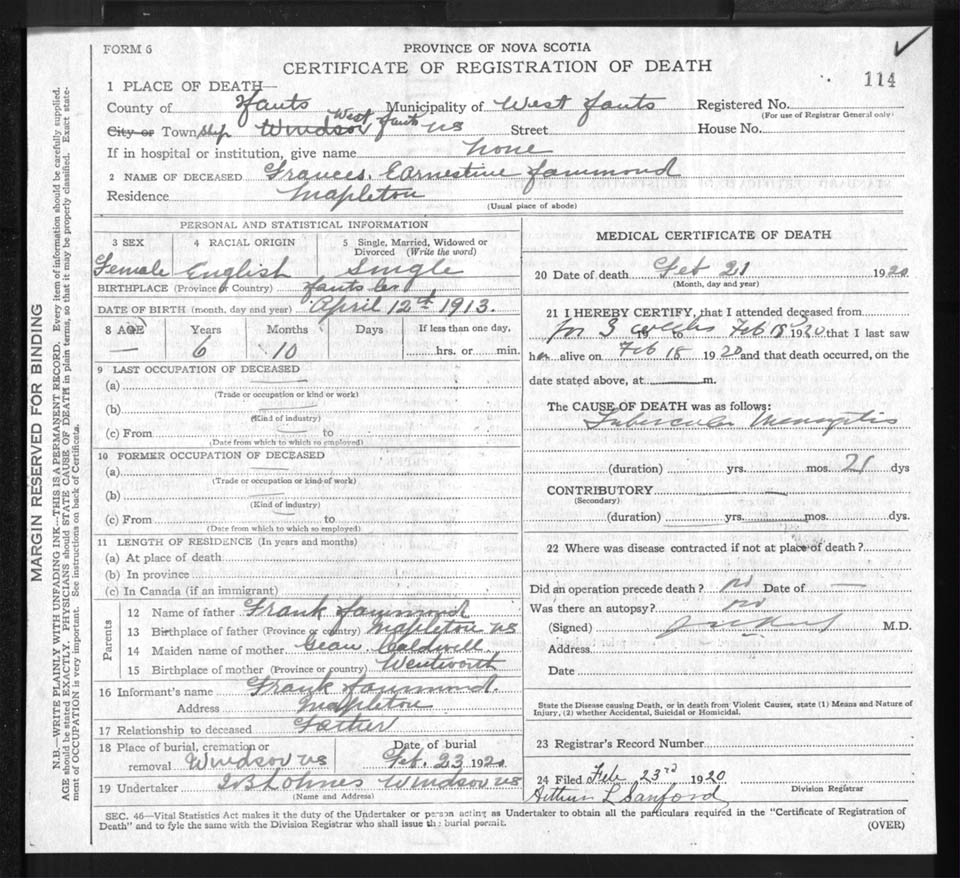 FORM 6
PROVINCE OF NOVA SCOTIA
CERTIFICATE OF REGISTRATION OF DEATH
114
1 PLACE OF DEATH—
County of Hants Municipality of West Hants Registered No.
(For use of Registrar General only)
City or Township Windsor West Hants NS Street House No.
If in hospital or institution, give name none
2 NAME OF DECEASED Frances Earnestine Hammond
Residence Mapleton
(Usual place of abode)
PERSONAL AND STATISTICAL INFORMATION
3 SEX 4 RACIAL ORIGIN 5 Single, Married, Widowed or Divorced (Write the word)
Female English Single
BIRTHPLACE (Province or Country) Hants Co
DATE OF BIRTH (month, day and year) April 12th 1913.
8 AGE Years Months Days If less than one day,
— 6 10 hrs. or min.
9 LAST OCCUPATION OF DECEASED
(a)
(Trade or occupation or kind or work)
(b)
(Kind of industry)
(c) From to
(Date from which to which so employed)
10 FORMER OCCUPATION OF DECEASED
(a)
(Trade or occupation or kind of work)
(b)
(Kind of industry)
(c) From to
(Date from which to which so employed)
11 LENGTH OF RESIDENCE (In years and months)
(a) At place of death
(b) In province
(c) In Canada (if an immigrant)
Parents
12 Name of father Frank Hammond
13 Birthplace of father (Province or country) Mapleton NS
14 Maiden name of mother Caldwell
15 Birthplace of mother (Province or country) Wentworth
16 Informant's name Frank Hammond.
Address Mapleton
17 Relationship to deceased Father
18 Place of burial, cremation or removal Windsor NS Date of burial Feb. 23 1920
19 Undertaker Windsor NS
(Name and Address)
MEDICAL CERTIFICATE OF DEATH
20 Date of death Feb 21 1920
(Month, day and year)
21 I HEREBY CERTIFY, that I attended deceased from
for 3 weeks to Feb 18 1920 that I last saw
her alive on Feb 18 1920 and that death occurred, on the
date stated above, at m.
The CAUSE OF DEATH was as follows:
Tubercular Meningitis
(duration) yrs. mos. 21 dys
CONTRIBUTORY
(Secondary)
(duration) yrs. mos. dys.
22 Where was disease contracted if not at place of death?
Did an operation precede death? no Date of —
Was there an autopsy? no
(Signed) M.D.
Address
Date
State the Disease causing Death, or in death from Violent Causes, state (1) Means and Nature of
Injury, (2) whether Accidental, Suicidal or Homicidal.
23 Registrar's Record Number
24 Filed Feb 23rd 1920
Arthur L Sanford Division Registrar
SEC. 46—Vital Statistics Act makes it the duty of the Undertaker or person acting as Undertaker to obtain all the particulars required in the "Certificate of Registration of
Death" and to fyle the same with the Division Registrar who shall issue the burial permit.
(OVER)
MARGIN RESERVED FOR BINDING
N.B.—WRITE PLAINLY WITH UNFADING INK—THIS IS A PERMANENT RECORD. Every item of information should be carefully supplied.
AGE should be stated EXACTLY. PHYSICIANS should STATE CAUSE OF DEATH in plain terms, so that it may be properly classified. Exact state-
ment of OCCUPATION is very important. See instructions on back of Certificate.